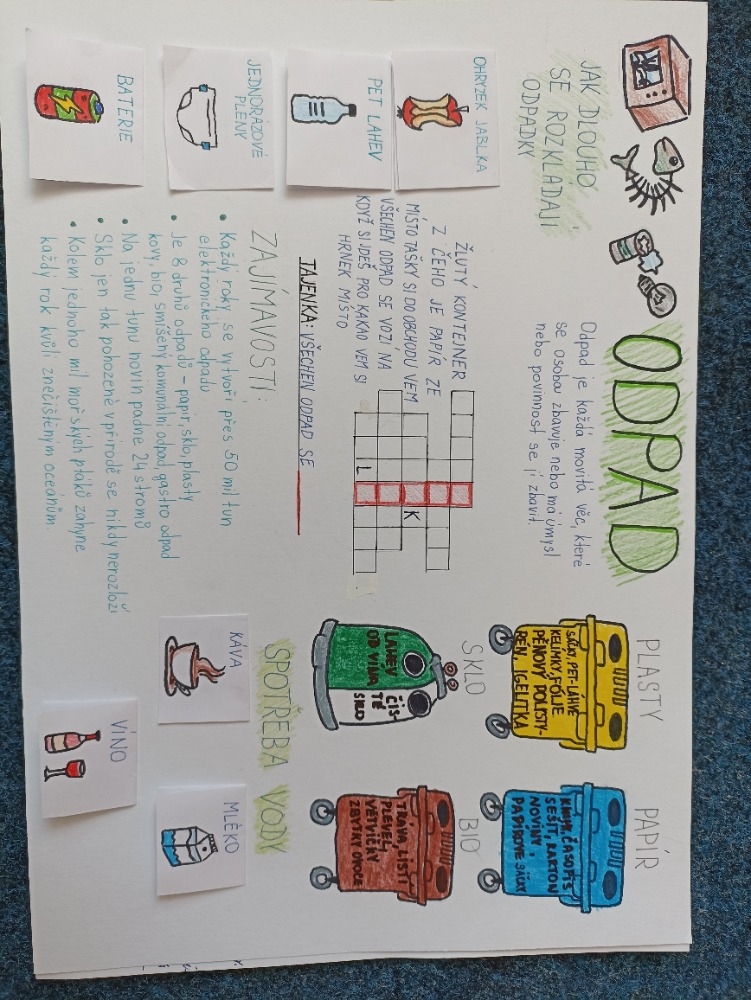 ODPAD
Odpad je každá movitá věc, které
se osoba zbavuje nebo má úmysl
nebo povinnost se jí zbavit.
JAK DLOUHO
SE ROZKLÁDAJÍ
ODPADKY
OHRYZEK JABLKA
PET LAHEV
JEDNORÁZOVÉ
PLENY
BATERIE
ŽLUTÝ KONTEJNER
Z ČEHO JE PAPÍR ZE
MÍSTO TAŠKY SI DO OBCHODU VEM
VŠECHEN ODPAD SE VOZI NA
KDYŽ SI JDEŠ PRO KAKAO VEM SI
HRNEK MÍSTO
K
L
TAJENKA: VŠECHEN ODPAD SE
ZAJÍMAVOSTI:
• Každý roky se vytvoří přes 50 mil tun
elektronického odpadu
• Je 8 druhů odpadů – papír, sklo, plasty
kovy, bio, směšený komunální odpad, gastro odpad
• Na jednu tunu novin padne 24 stromů
• Sklo jen tak pohozené v přírodě se nikdy nerozloží
• Kolem jednoho mil mořských ptáků zahyne
každý rok kvůli znečištěným oceánům.
PLASTY
SÁČKY, PET-LÁHVE
KELÍMKY, FÓLIE
PĚNOVÝ POLISTY-
REN, IGELITKA
PAPÍR
KNIHY, ČASOPIS
SEŠIT, KARTON
NOVINY,
PAPÍROVÉ SÁČKY
SKLO
LAHEV
OD VÍNA
ČIS-
TÉ
SKLO
BIO
TRÁVA, LISTÍ
PLEVEL,
VĚTVIČKY
ZBYTKY OVOCE
SPOTŘEBA VODY
KÁVA
MLÉKO
VÍNO